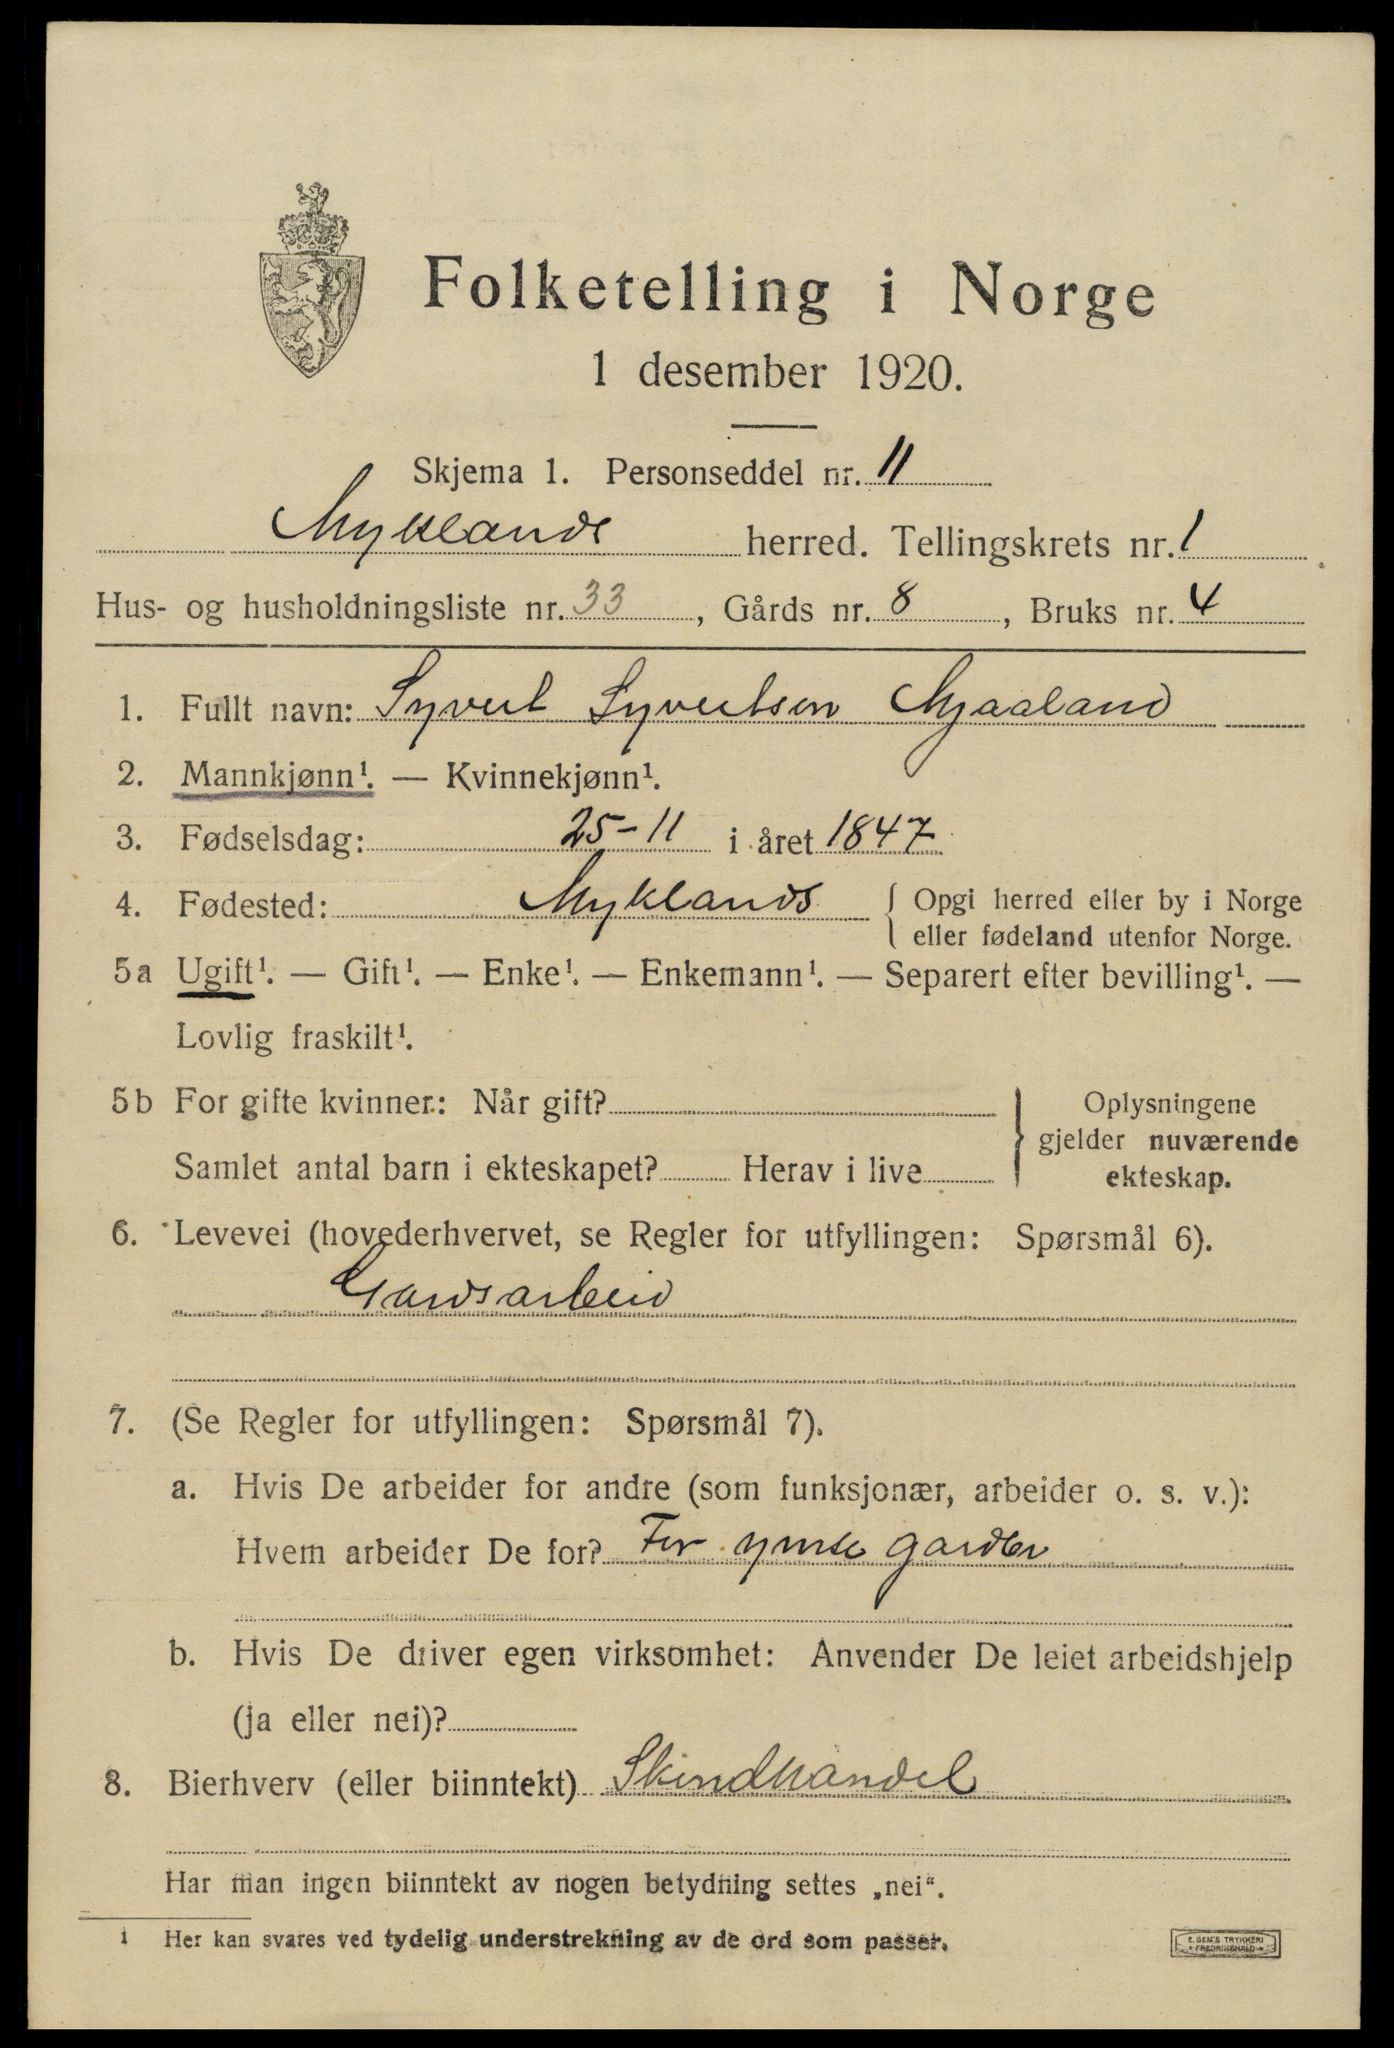 Folketelling i Norge
1 desember 1920.
Skjema 1. Personseddel nr. 11
Myklands herred. Tellingskrets nr. 1
Hus- og husholdningsliste nr. 33, Gårds nr. 8, Bruks nr. 4
1. Fullt navn: Syvert Syvertsen Mjaaland
2. Mannkjønn¹. — Kvinnekjønn¹.
3. Fødselsdag: 25-11 i året 1847
4. Fødested: Myklands { Opgi herred eller by i Norge
eller fødeland utenfor Norge.
5a Ugift¹. — Gift¹. — Enke¹. — Enkemann¹. — Separert efter bevilling¹. —
Lovlig fraskilt¹.
5b For gifte kvinner: Når gift?
Samlet antal barn i ekteskapet? Herav i live
} Oplysningene
gjelder nuværende
ekteskap.
6. Levevei (hovederhvervet, se Regler for utfyllingen: Spørsmål 6).
Gardsarbeid
7. (Se Regler for utfyllingen: Spørsmål 7).
a. Hvis De arbeider for andre (som funksjonær, arbeider o. s. v.):
Hvem arbeider De for? For ymse garder
b. Hvis De driver egen virksomhet: Anvender De leiet arbeidshjelp
(ja eller nei)?
8. Bierhverv (eller biinntekt) Skindhandel
Har man ingen biinntekt av nogen betydning settes „nei“.
1 Her kan svares ved tydelig understrekning av de ord som passer.
E. SEM'S TRYKKERI
FREDRIKSHALD